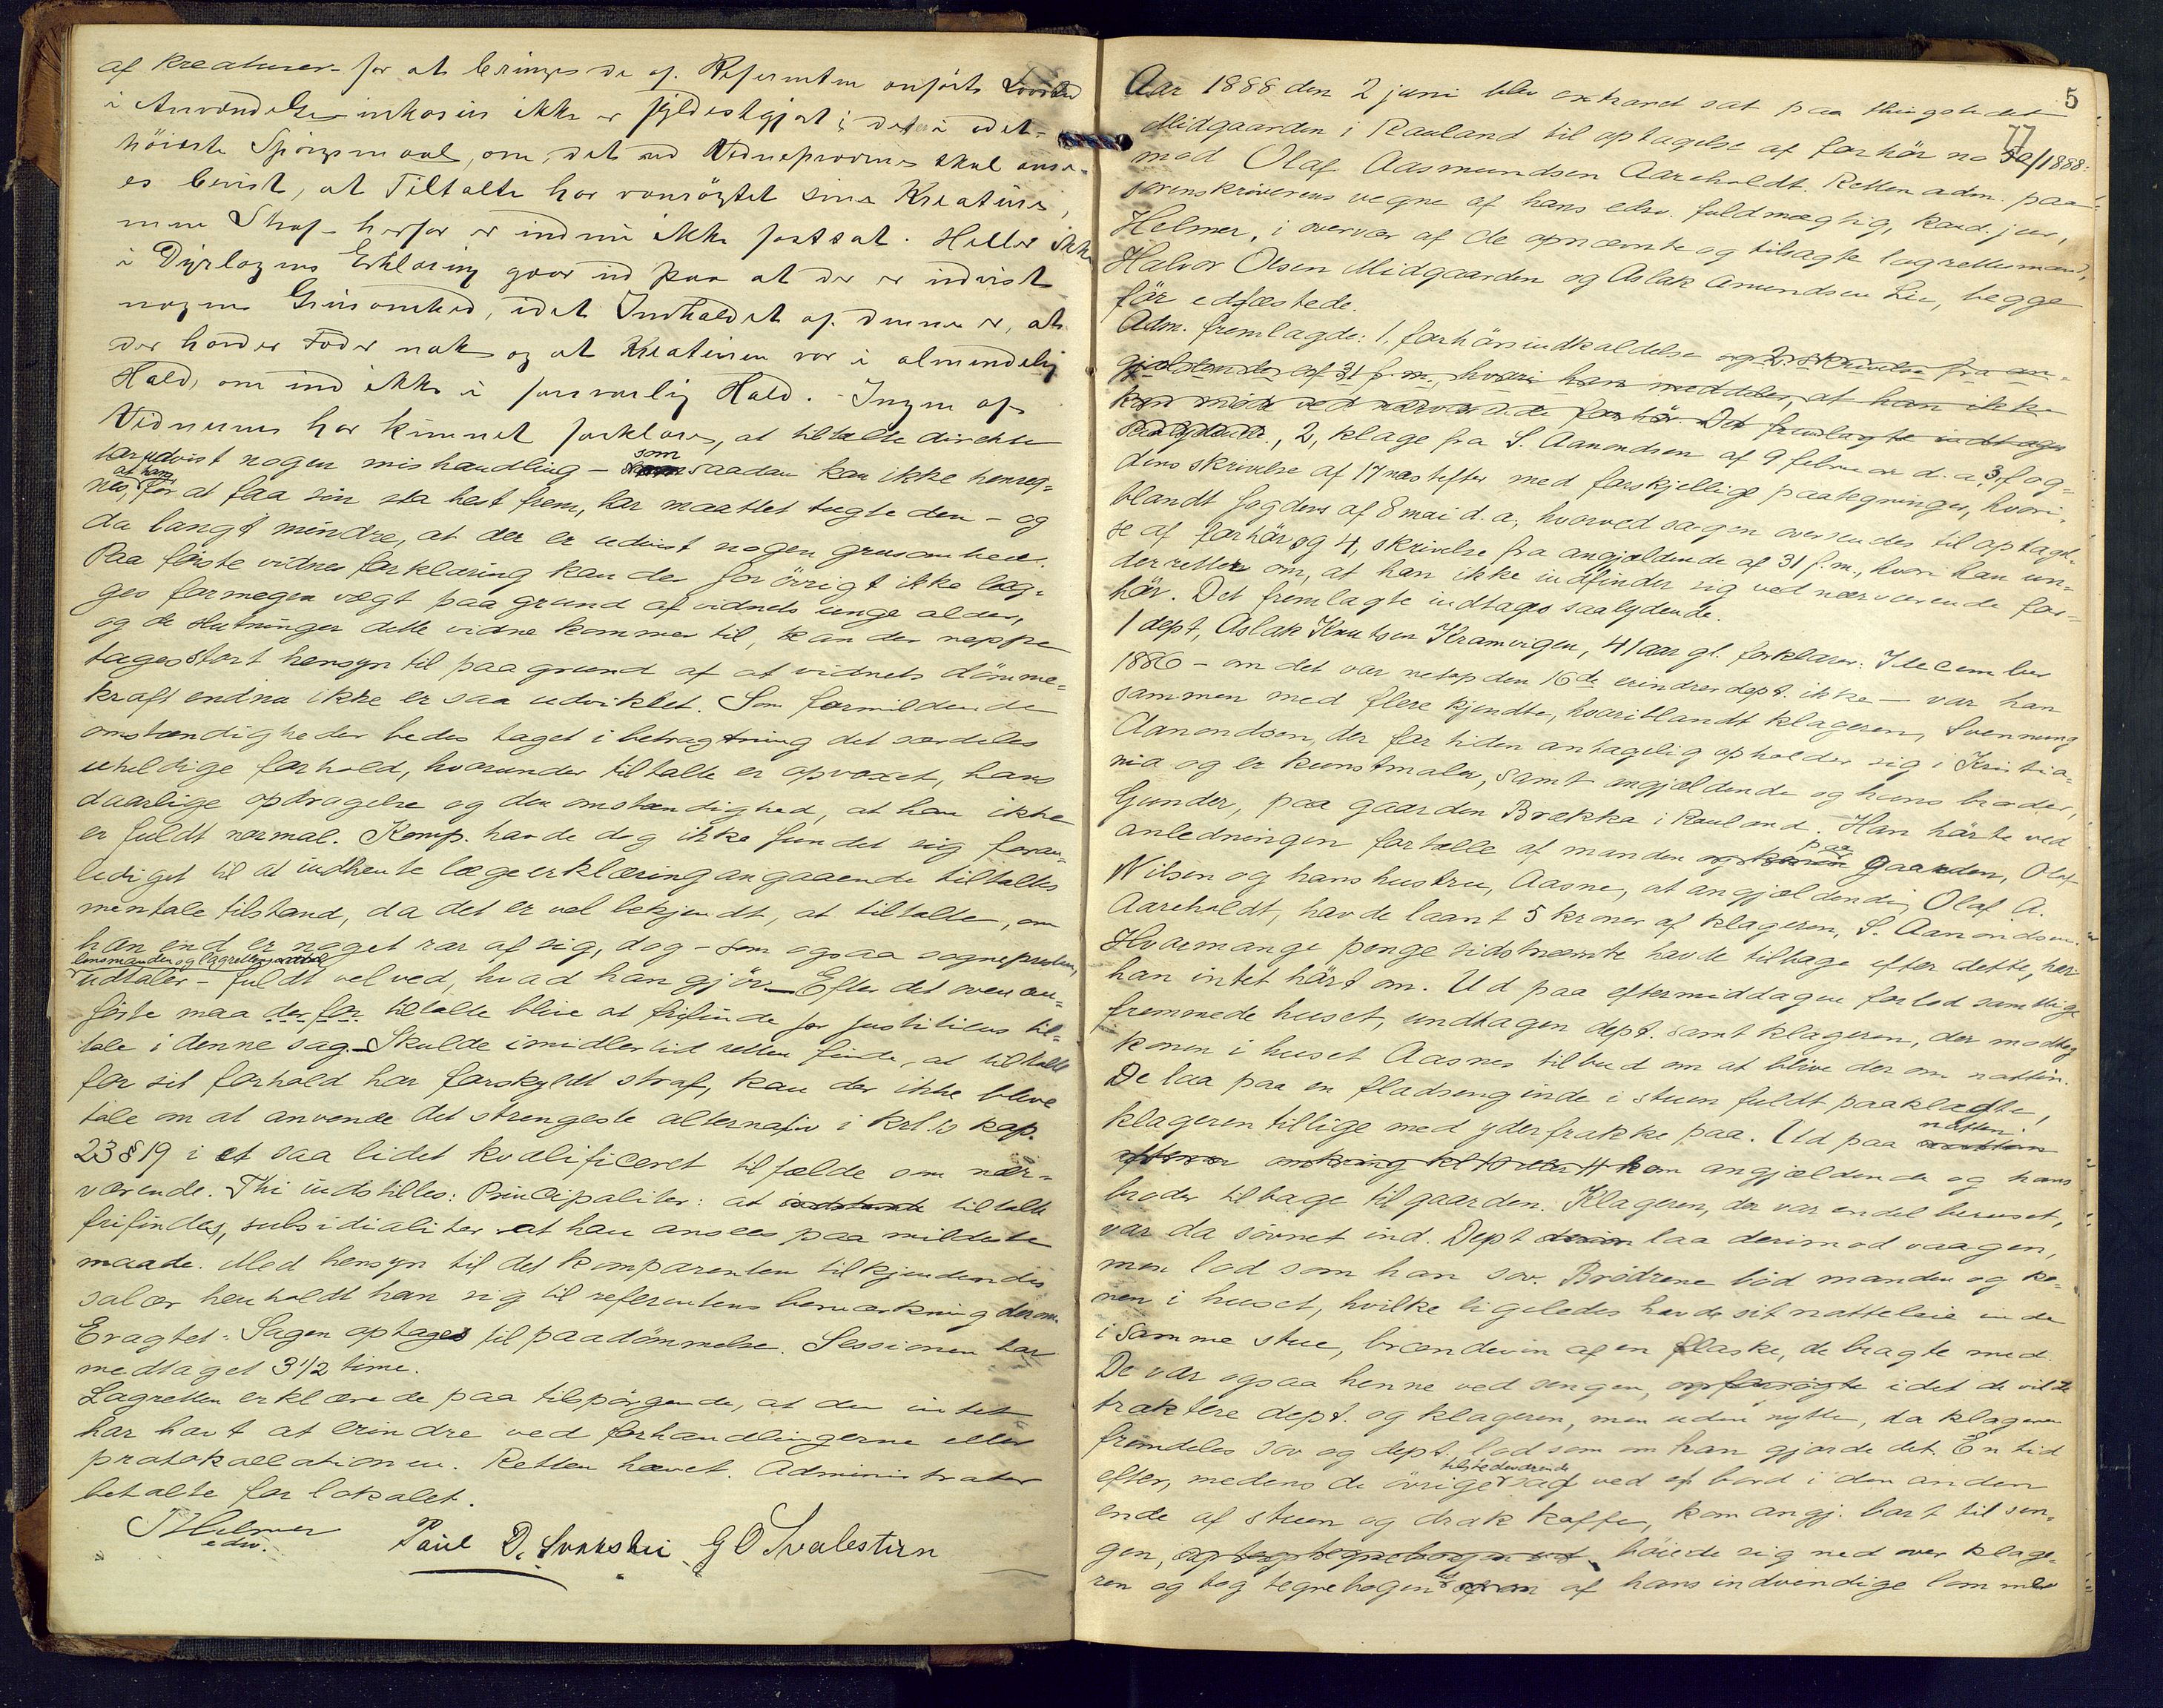 af Kreaturer for at bringes de af Referenten anførte Lovsted
i Anvendelse inkasus ikke er fyldestgjort; det er i det
höieste Spörgsmaal, om det ved Vidneprovene skal anse-
es bevist, at Tiltalte har vanrögtet sine Kreaturer,
men Straf herfor er endnu ikke fastsat. Heller ikke
i Dyrlægens Erklæring gaar ud paa at der er udvist
nogen Grusomhed, idet Indholdet af denne er, at
der havdes Foder nok og at Kreaturene var i almindelig
Hold, om end ikke i forsvarlig Hold. Ingen af
Vidnerne har kunnet forklare, at tiltalte direkte
har udvist nogen mishandling – som saadan kan ikke henreg-
nes, at han for at faa sin sta hest frem, har maattet tugte den – og
da langt mindre, at der er udvist nogen grusomhed.
Paa förste vidnes forklaring kan der for övrigt ikke læg-
ges formegen vægt paa grund af vidnets unge alder,
og de slutninger dette vidne kommer til, kan der neppe
tages stort hensyn til paa grund af at vidnets dömme-
kraft endnu ikke er saa udviklet. Som formildende
omstændigheder bedes taget i betragtning det særdeles
uheldige forhold, hvorunder tiltalte er opvoxet, hans
daarlige opdragelse og den omstændighed, at han ikke
er fuldt normal. Komp. havde dog ikke fundet sig foran-
lediget til at indhente lægeerklæring angaaende tiltaltes
mentale tilstand, da det er vel bekjendt, at tiltalte, om
han end er noget rar af sig, dog – som ogsaa sognepresten,
lensmanden og lagrettesvidnet
udtaler – fuldt vel ved, hvad han gjör. – Efter det ovenan-
förte maa derfor tiltalte blive at frifinde for justitiens til-
tale i denne sag. – Skulde imidlertid retten finde, at tiltalte
for sit forhold har forskyldt straf, kan der ikke blive
tale om at anvende det strengeste alternativ i krl.s kap.
23 § 19 i et saa lidet kvalificeret tilfælde som nær-
værende. Thi indstilles: Principaliter: at tiltalte
frifindes, subsidialiter at han ansees paa mildeste
maade. Med hensyn til det komparenten tilkjendendes
salær henholdt han sig til referentens bemærkning derom.
Eragtet: Sagen optages til paadömmelse. Sessionen har
medtaget 3 1/2 time.
Lagretten erklærede paa tilspörgende, at den intet
har havt at erindre ved forhandlingerne eller
protokollationen. Retten hævet. Administrator
betalte for lokalet.
J Helmer
edsv.
Paul D. Svaksli G O Svalestuen
5
Aar 1888 den 2 juni blev extraret sat paa thingstedet
Midgaarden i Rauland til optagelse af forhör no 77/1888:
mod Olaf Aasmundsen Aareholdt. Retten adm. paa
sorenskriverens vegne af hans edsv. fuldmægtig, kand. jur,
Helmer, i overvær af de opnævnte og tilsagte lagrettesmænd,
Halvor Olsen Midgaarden og Aslak Amundsen Lie, begge
för edfæstede.
Adm. fremlagde: 1, forhörsindkaldelse og 2, skrivelse fra an-
gjældende af 31 f.m., hvori han meddeler, at han ikke
kan möde ved nærværende forhör. Det fremlagte indtages
saalydende., 2, klage fra S. Aanondsen af 9 februar d.a. 3, fog-
dens skrivelse af 17 næstefter med forskjellige paategninger, hvori-
blandt fogdens af 8 mai d.a., hvorved sagen oversendes til optagel-
se af forhör og 4, skrivelse fra angjældende af 31 f.m., hvori han un-
derretter om, at han ikke indfinder sig ved nærværende for-
hör. Det fremlagte indtages saalydende.
1 dept, Aslak Knutsen Kramvigen, 41 aar gl. forklarer: I december
1886 – om det var netop den 16de erindrer dept. ikke – var han
sammen med flere kjendte, hvoriblandt klageren, Svennung
Aanondsen, der for tiden antagelig opholder sig i Kristia-
nia og er kunstmaler, samt angjældende og hans broder,
Gunder, paa gaarden Brækka i Rauland. Han hörte ved
anledningen fortælle af manden paa gaarden, Olaf
Nilsen og hans hustru, Aasne, at angjældende, Olaf A.
Aareholdt, havde laant 5 kroner af klageren, S. Aanondsen.
Hvormange penge sidstnævnte havde tilbage efter dette, har
han intet hört om. Ud paa eftermiddagen forlod samtlige
fremmede huset, undtagen dept. samt klageren, der modtog
konen i huset Aasnes tilbud om at blive der om natten.
De laa paa en fladseng inde i stuen fuldt paaklædte,
klageren tillige med yderfrakke paa. Ud paa natten
omkring kl 10 eller 11 kom angjældende og hans
broder tilbage til gaarden. Klageren, der var endel beruset,
var da sövnet ind. Dept laa derimod vaagen,
men lod som han sov. Brödrene böd manden og ko-
nen i huset, hvilke ligeledes havde sit natteleie inde
i samme stue, brændevin af en flaske, de bragte med.
De var ogsaa henne ved sengen, og forsögte idet de vilde
traktere dept. og klageren, men uden nytte, da klageren
fremdeles sov og dept. lod som om han gjorde det. En tid
efter, medens de övrige tilstedeværende sad ved et bord i den anden
ende af stuen og drak kaffe, kom angj. bort til sen-
gen, böiede sig ned over klage-
ren og tog tegnebogen ud af hans indvendige lomme